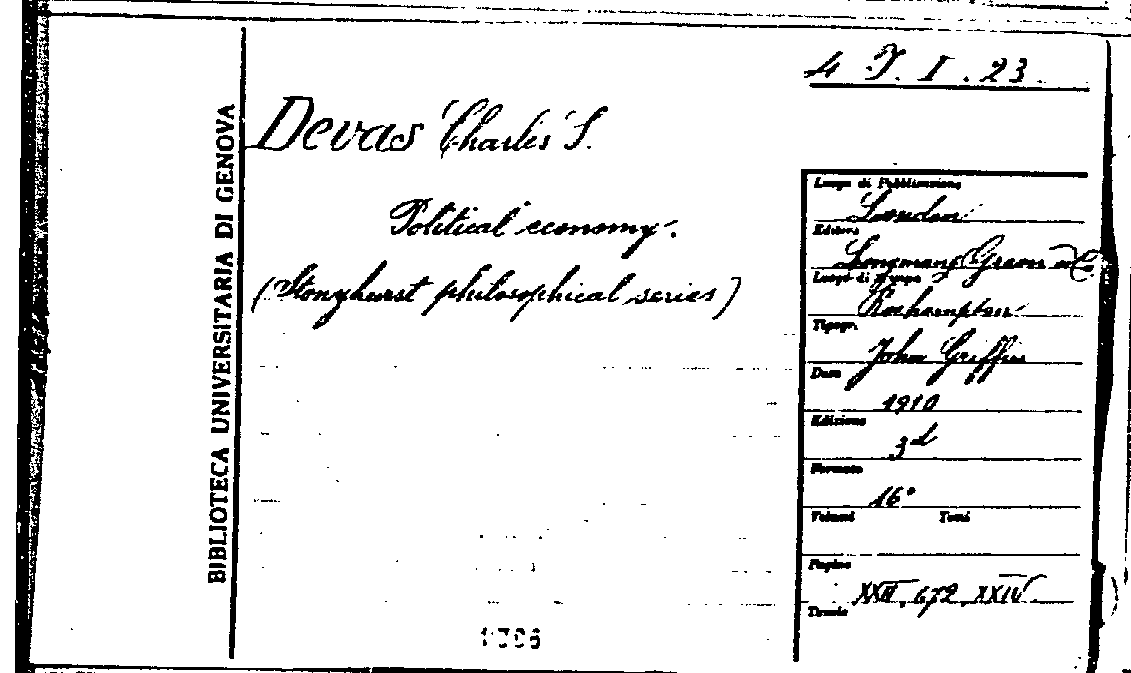 4 J. I. 23.
BIBLIOTECA UNIVERSITARIA DI GENOVA
Devas Charles S.
Political economy.
(Stonyhurst philosophical series)
Luogo di Pubblicazione
London
Editore
Longmans Green and C.
Luogo di stampa
Roehampton
Tipogr.
John Griffin
Data
1910
Edizione
3d
Formato
16°
Volumi Tomi
Pagine
XXII, 672, XXIV